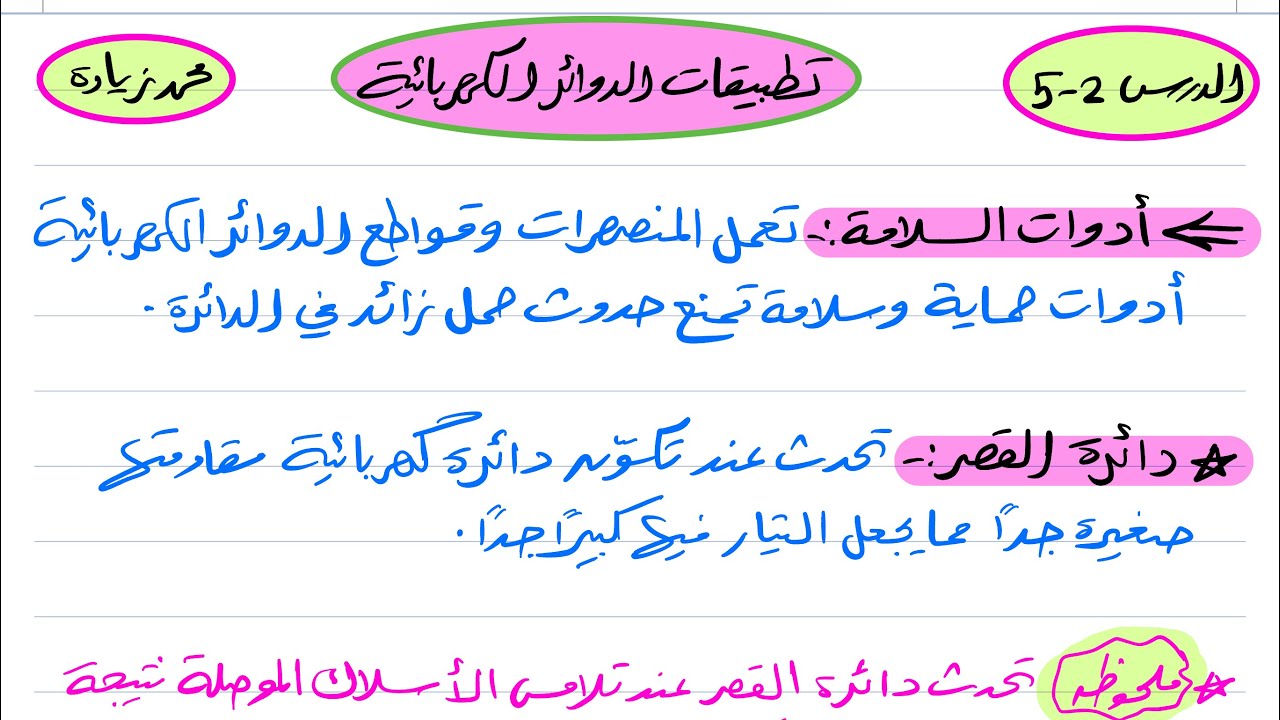 الدرس 2-5
تطبيقات الدوائر الكهربائية
محمد زيادة
أدوات السلامة :- تعمل المنصهرات وقواطع الدوائر الكهربائية
أدوات حماية وسلامة تمنع حدوث حمل زائد في الدائرة .
دائرة القصر :- تحدث عند تكوّن دائرة كهربائية مقاومتها
صغيرة جدًا مما يجعل التيار فيها كبيرًا جدًا .
ملحوظة تحدث دائرة القصر عند تلامس الأسلاك الموصلة نتيجة